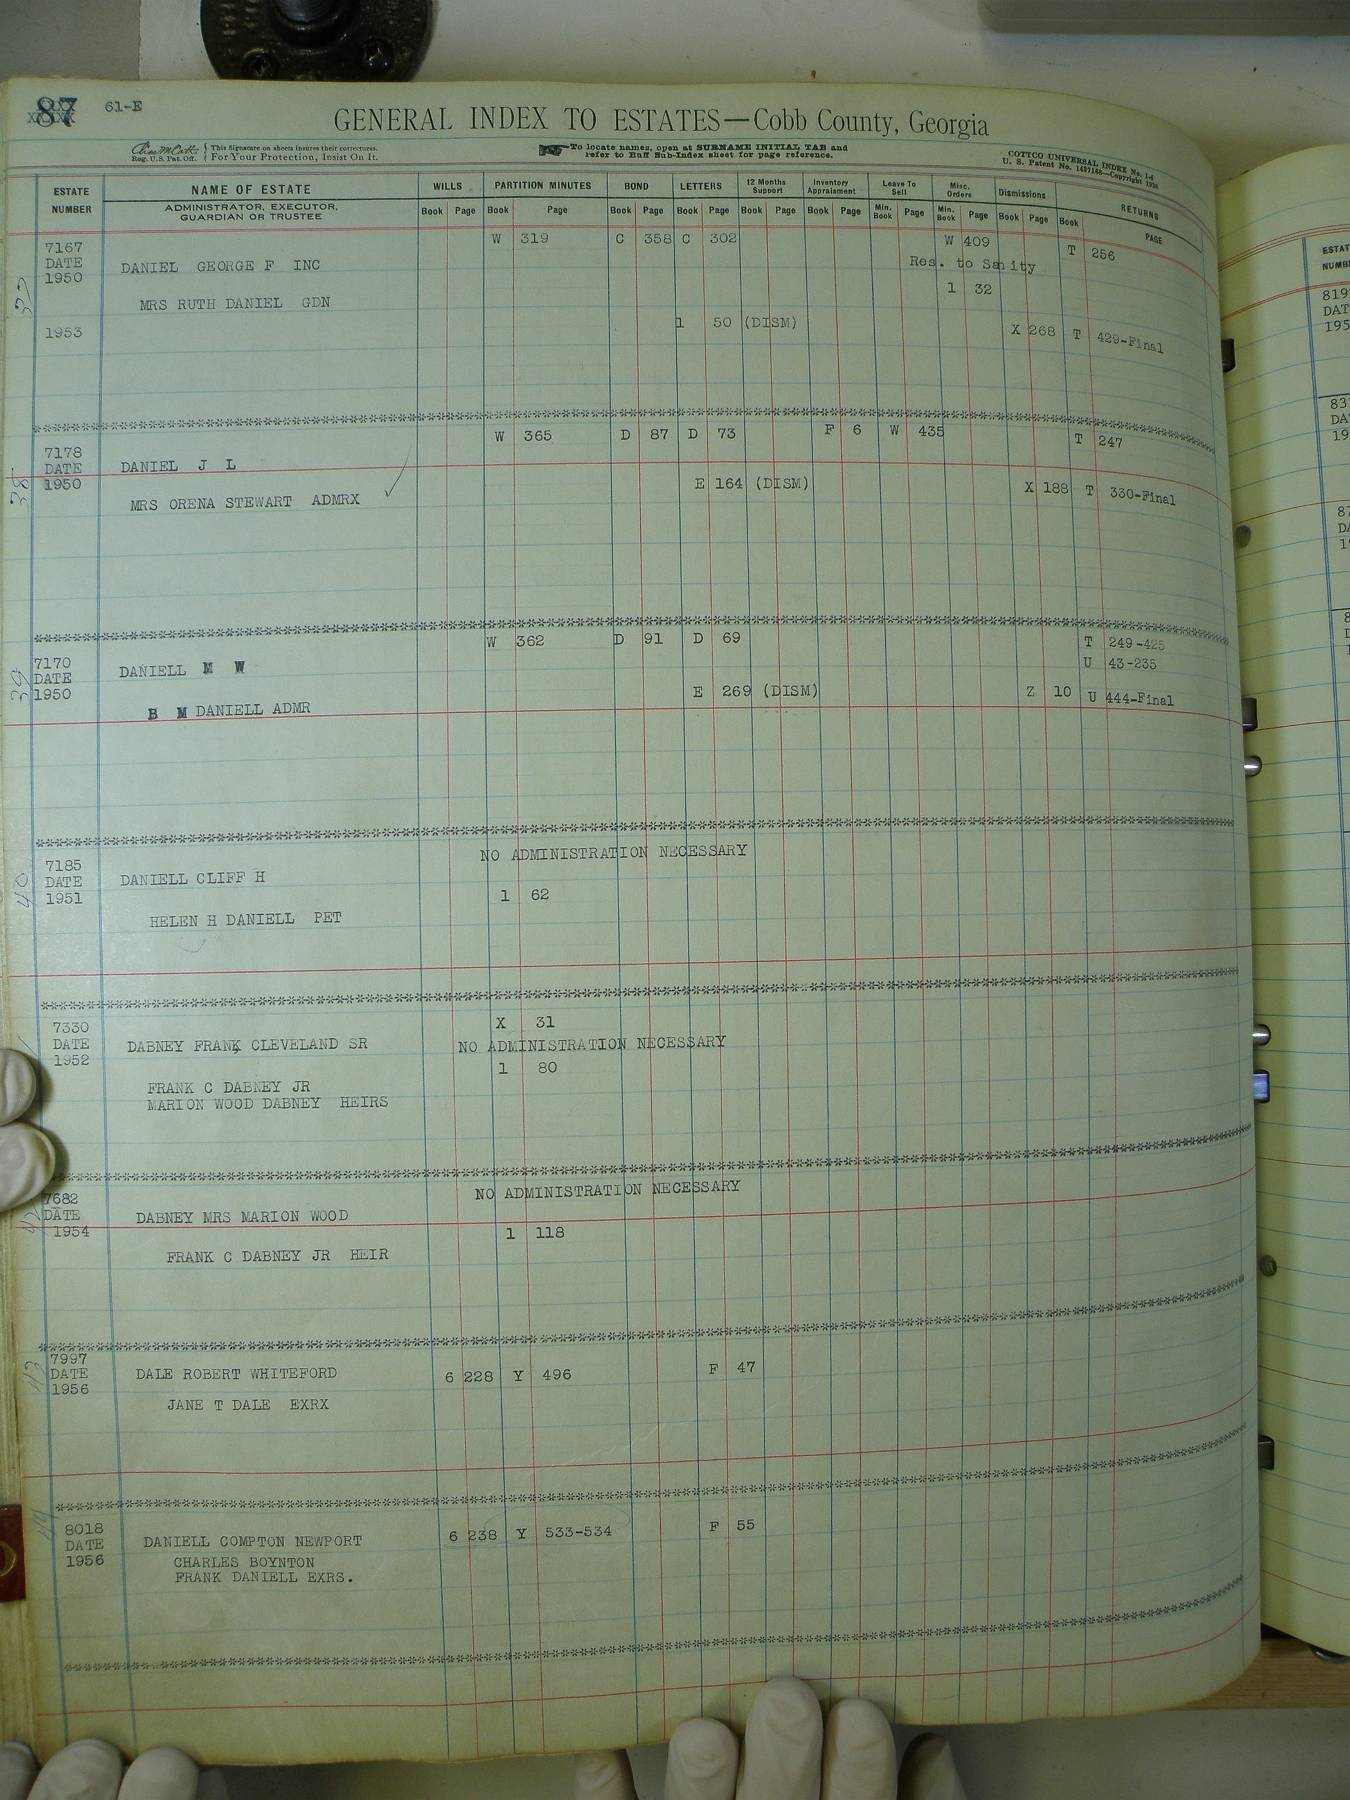 87 61-E
GENERAL INDEX TO ESTATES—Cobb County, Georgia
Reg. U.S. Pat. Off. { This Signature on sheets insures their correctness. For Your Protection, Insist On It.
To locate names, open at SURNAME INITIAL TAB and
refer to Buff Sub-Index sheet for page reference.
COTTCO UNIVERSAL INDEX No. 1-4
U. S. Patent No. 1497168—Copyright 1936
ESTATE NUMBER NAME OF ESTATE WILLS PARTITION MINUTES BOND LETTERS 12 Months Support Inventory Appraisment Leave To Sell Misc. Orders Dismissions RETURNS
ADMINISTRATOR, EXECUTOR, GUARDIAN OR TRUSTEE Book Page Book Page Book Page Book Page Book Page Book Page Min. Book Page Min. Book Page Book Page Book PAGE
W 319 C 358 C 302 W 409 T 256
7167
DATE DANIEL GEORGE F INC Res. to Sanity
1950
1 32
MRS RUTH DANIEL GDN
1953 1 50 (DISM) X 268 T 429-Final
W 365 D 87 D 73 F 6 W 435 T 247
7178
DATE DANIEL J L
1950 E 164 (DISM) X 188 T 330-Final
38
MRS ORENA STEWART ADMRX
W 362 D 91 D 69 T 249-425
7170 U 43-235
DATE DANIELL M W
39 1950 E 269 (DISM) Z 10 U 444-Final
B M DANIELL ADMR
NO ADMINISTRATION NECESSARY
7185
DATE DANIELL CLIFF H
40 1951 1 62
HELEN H DANIELL PET
X 31
7330
DATE DABNEY FRANK CLEVELAND SR NO ADMINISTRATION NECESSARY
1952 1 80
FRANK C DABNEY JR
MARION WOOD DABNEY HEIRS
NO ADMINISTRATION NECESSARY
7682
DATE DABNEY MRS MARION WOOD
1954 1 118
FRANK C DABNEY JR HEIR
7997
DATE DALE ROBERT WHITEFORD 6 228 Y 496 F 47
43 1956
JANE T DALE EXRX
8018 6 238 Y 533-534 F 55
44 DATE DANIELL COMPTON NEWPORT
1956 CHARLES BOYNTON
FRANK DANIELL EXRS.